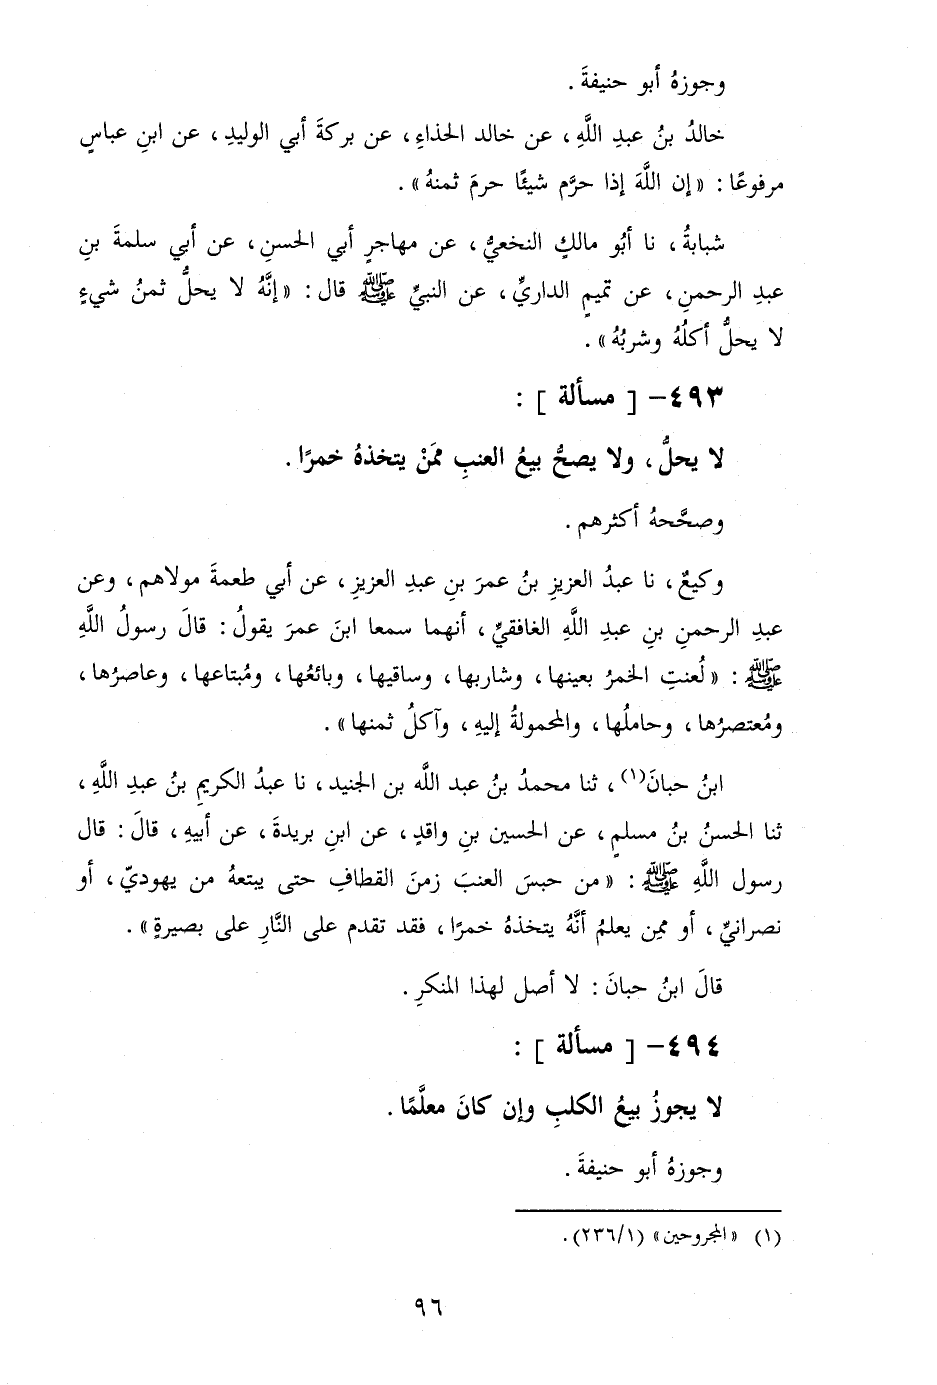 وجوزهُ أبو حنيفةَ .
خالدُ بنُ عبدِ اللَّهِ ، عن خالد الحذاءِ ، عن بركةَ أبي الوليدِ ، عن ابنِ عباسٍ
مرفوعًا : « إن اللَّهَ إذا حرَّم شيئًا حرمَ ثمنهُ » .
شبابةُ ، نا أبُو مالكٍ النخعيُّ ، عن مهاجرٍ أبي الحسنِ ، عن أبي سلمةَ بنِ
عبدِ الرحمنِ ، عن تميمٍ الداريِّ ، عن النبيِّ ﷺ قال : « إنَّهُ لا يحلُّ ثمنُ شيءٍ
لا يحلُّ أكلُهُ وشربُهُ » .
٤٩٣- [ مسألة ] :
لا يحلُّ ، ولا يصحُّ بيعُ العنبِ ممَنْ يتخذهُ خمرًا .
وصحَّحهُ أكثرهم .
وكيعٌ ، نا عبدُ العزيزِ بنُ عمرَ بنِ عبدِ العزيزِ ، عن أبي طعمةَ مولاهم ، وعن
عبدِ الرحمنِ بنِ عبدِ اللَّهِ الغافقيِّ ، أنهما سمعا ابنَ عمرَ يقولُ : قالَ رسولُ اللَّهِ
ﷺ : « لُعنتِ الخمرُ بعينها ، وشاربها ، وساقيها ، وبائعُها ، ومُبتاعها ، وعاصرُها ،
ومُعتصرُها ، وحاملُها ، والمحمولةُ إليهِ ، وآكلُ ثمنها » .
ابنُ حبانَ(١) ، ثنا محمدُ بنُ عبد اللَّه بن الجنيد ، نا عبدُ الكريمِ بنُ عبدِ اللَّهِ ،
ثنا الحسنُ بنُ مسلمٍ ، عن الحسين بنِ واقدٍ ، عن ابنِ بريدةَ ، عن أبيهِ ، قالَ : قال
رسول اللَّهِ ﷺ : « من حبسَ العنبَ زمنَ القطافِ حتى يبتعهُ من يهوديّ ، أو
نصرانيِّ ، أو ممِن يعلمُ أنَّهُ يتخذهُ خمرًا ، فقد تقدم على النَّارِ على بصيرةٍ » .
قالَ ابنُ حبانَ : لا أصل لهذا المنكرِ .
٤٩٤- [ مسألة ] :
لا يجوزُ بيعُ الكلبِ وإن كانَ معلَّمًا .
وجوزهُ أبو حنيفةَ .
(١) « المجروحين » (٢٣٦/١).
٩٦